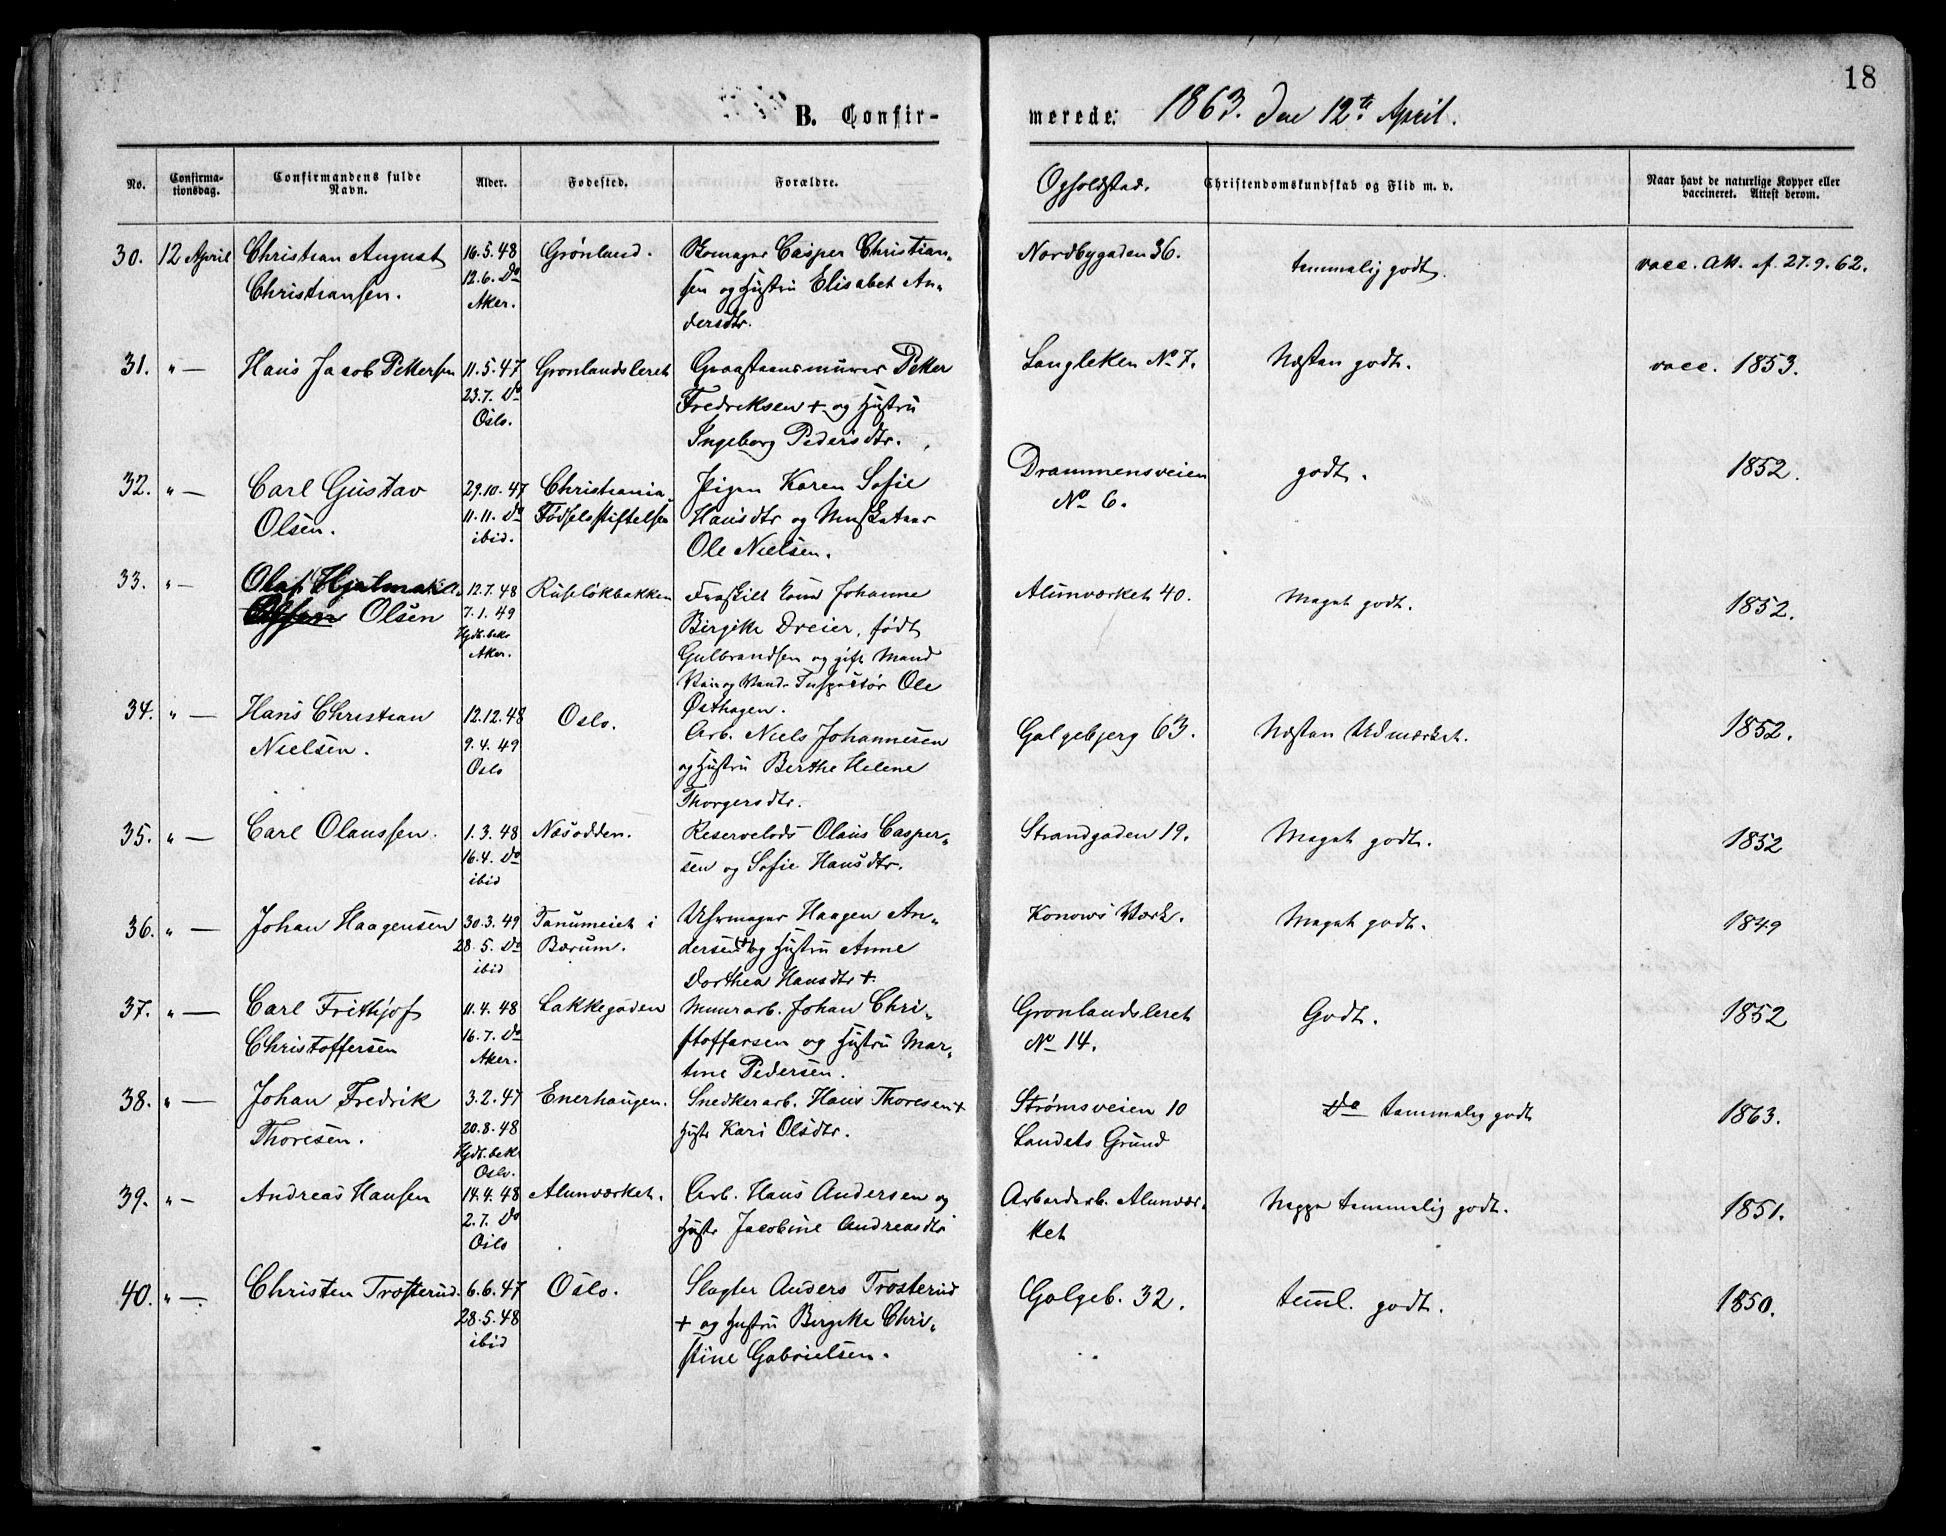 18
B. Confir-
merede: 1863. den 12te April.
No.
Confirma-
tionsdag.
Confirmandens fulde
Navn.
Alder.
Fødested.
Forældre.
Opholdsted.
Christendomskundskab og Flid m. v.
Naar havt de naturlige Kopper eller
vaccineret. Attest derom.
30. 12 April Christian August 16.5.48 Grønland. Bomager Casper Christian- Nordbygaden 36. temmelig godt. vacc. Att. f. 27.9.62.
Christiansen. 12.6. Do sen og Hustru Elisabet An-
Aker. dersdtr.
31. " — Hans Jacob Pettersen 11.5.47 Grønlandsleret Graasteensmurer Petter Langleken No 7. Næsten godt. vacc. 1853.
23.7. Do Fredriksen + og Hustru
Oslo. Ingeborg Pedersdtr.
32. " — Carl Gustav 29.10.47 Christiania Pigen Karen Sofie Drammensveien godt. 1852.
Olsen. 11.11. Do Fødselsstiftelsen Hansdtr og Musketeer No 6.
ibid. Ole Nielsen.
33. " — Olaf Hjalmar 12.7.48 Ruseløkbakken Fraskilt Johanne Alunværket 40. Meget godt. 1852.
Olsen 7.1.49 Birgitte Dreier, født
Hjdb. bekr. Gulbrandsen og gift Mand
Aker. Vei og Vand-Inspectør Ole
Østhagen.
34. " — Hans Christian 12.12.48 Oslo. Arb. Niels Johannesen Galgebjerg 63. Næsten Udmærket. 1852.
Nielsen. 9.4.49 og Hustru Berthe Helene
Oslo Thorgersdtr.
35. " — Carl Olaussen. 1.3.48 Næsodden. Reservelods Olaus Casper- Strandgaden 19. Meget godt. 1852
16.4. Do sen og Sofie Hansdtr.
ibid
36. " — Johan Haagensen 30.3.49 Tanumeiet i Uhrmager Haagen An- Konows Værk. Meget godt. 1849
28.5. Do Bærum. dersen + og Hustru Anne
ibid Dorthea Hansdtr +
37. " — Carl Frithjof 11.4.48 Lakkegaden Murarb. Johan Chri- Grønlandsleret Godt. 1852
Christoffersen 16.7. Do stoffersen og Hustru Mar- No 14.
Aker. tine Pedersen.
38. " — Johan Fredrik 3.2.47 Enerhaugen. Snedkerarb. Hans Thoresen + Strømsveien 10 Do temmelig godt 1863.
Thoresen. 20.8.48 Hustr Kari Olsdtr. Landets Grund
Hjdb. bekr
Oslo.
39. " — Andreas Hansen 14.4.48 Alunværket. Arb. Hans Andersen og Arbeiderb. Alunvær- Neppe temmelig godt. 1851.
2.7. Do Hustr Jacobine Andreasdtr ket
Oslo
40. " — Christen Trosterud. 6.6.47 Oslo. Slagter Anders Trosterud Galgeb. 32. teml. godt. 1850.
28.5.48 + og Hustru Birgitte Chri-
ibid stine Gabrielsen.